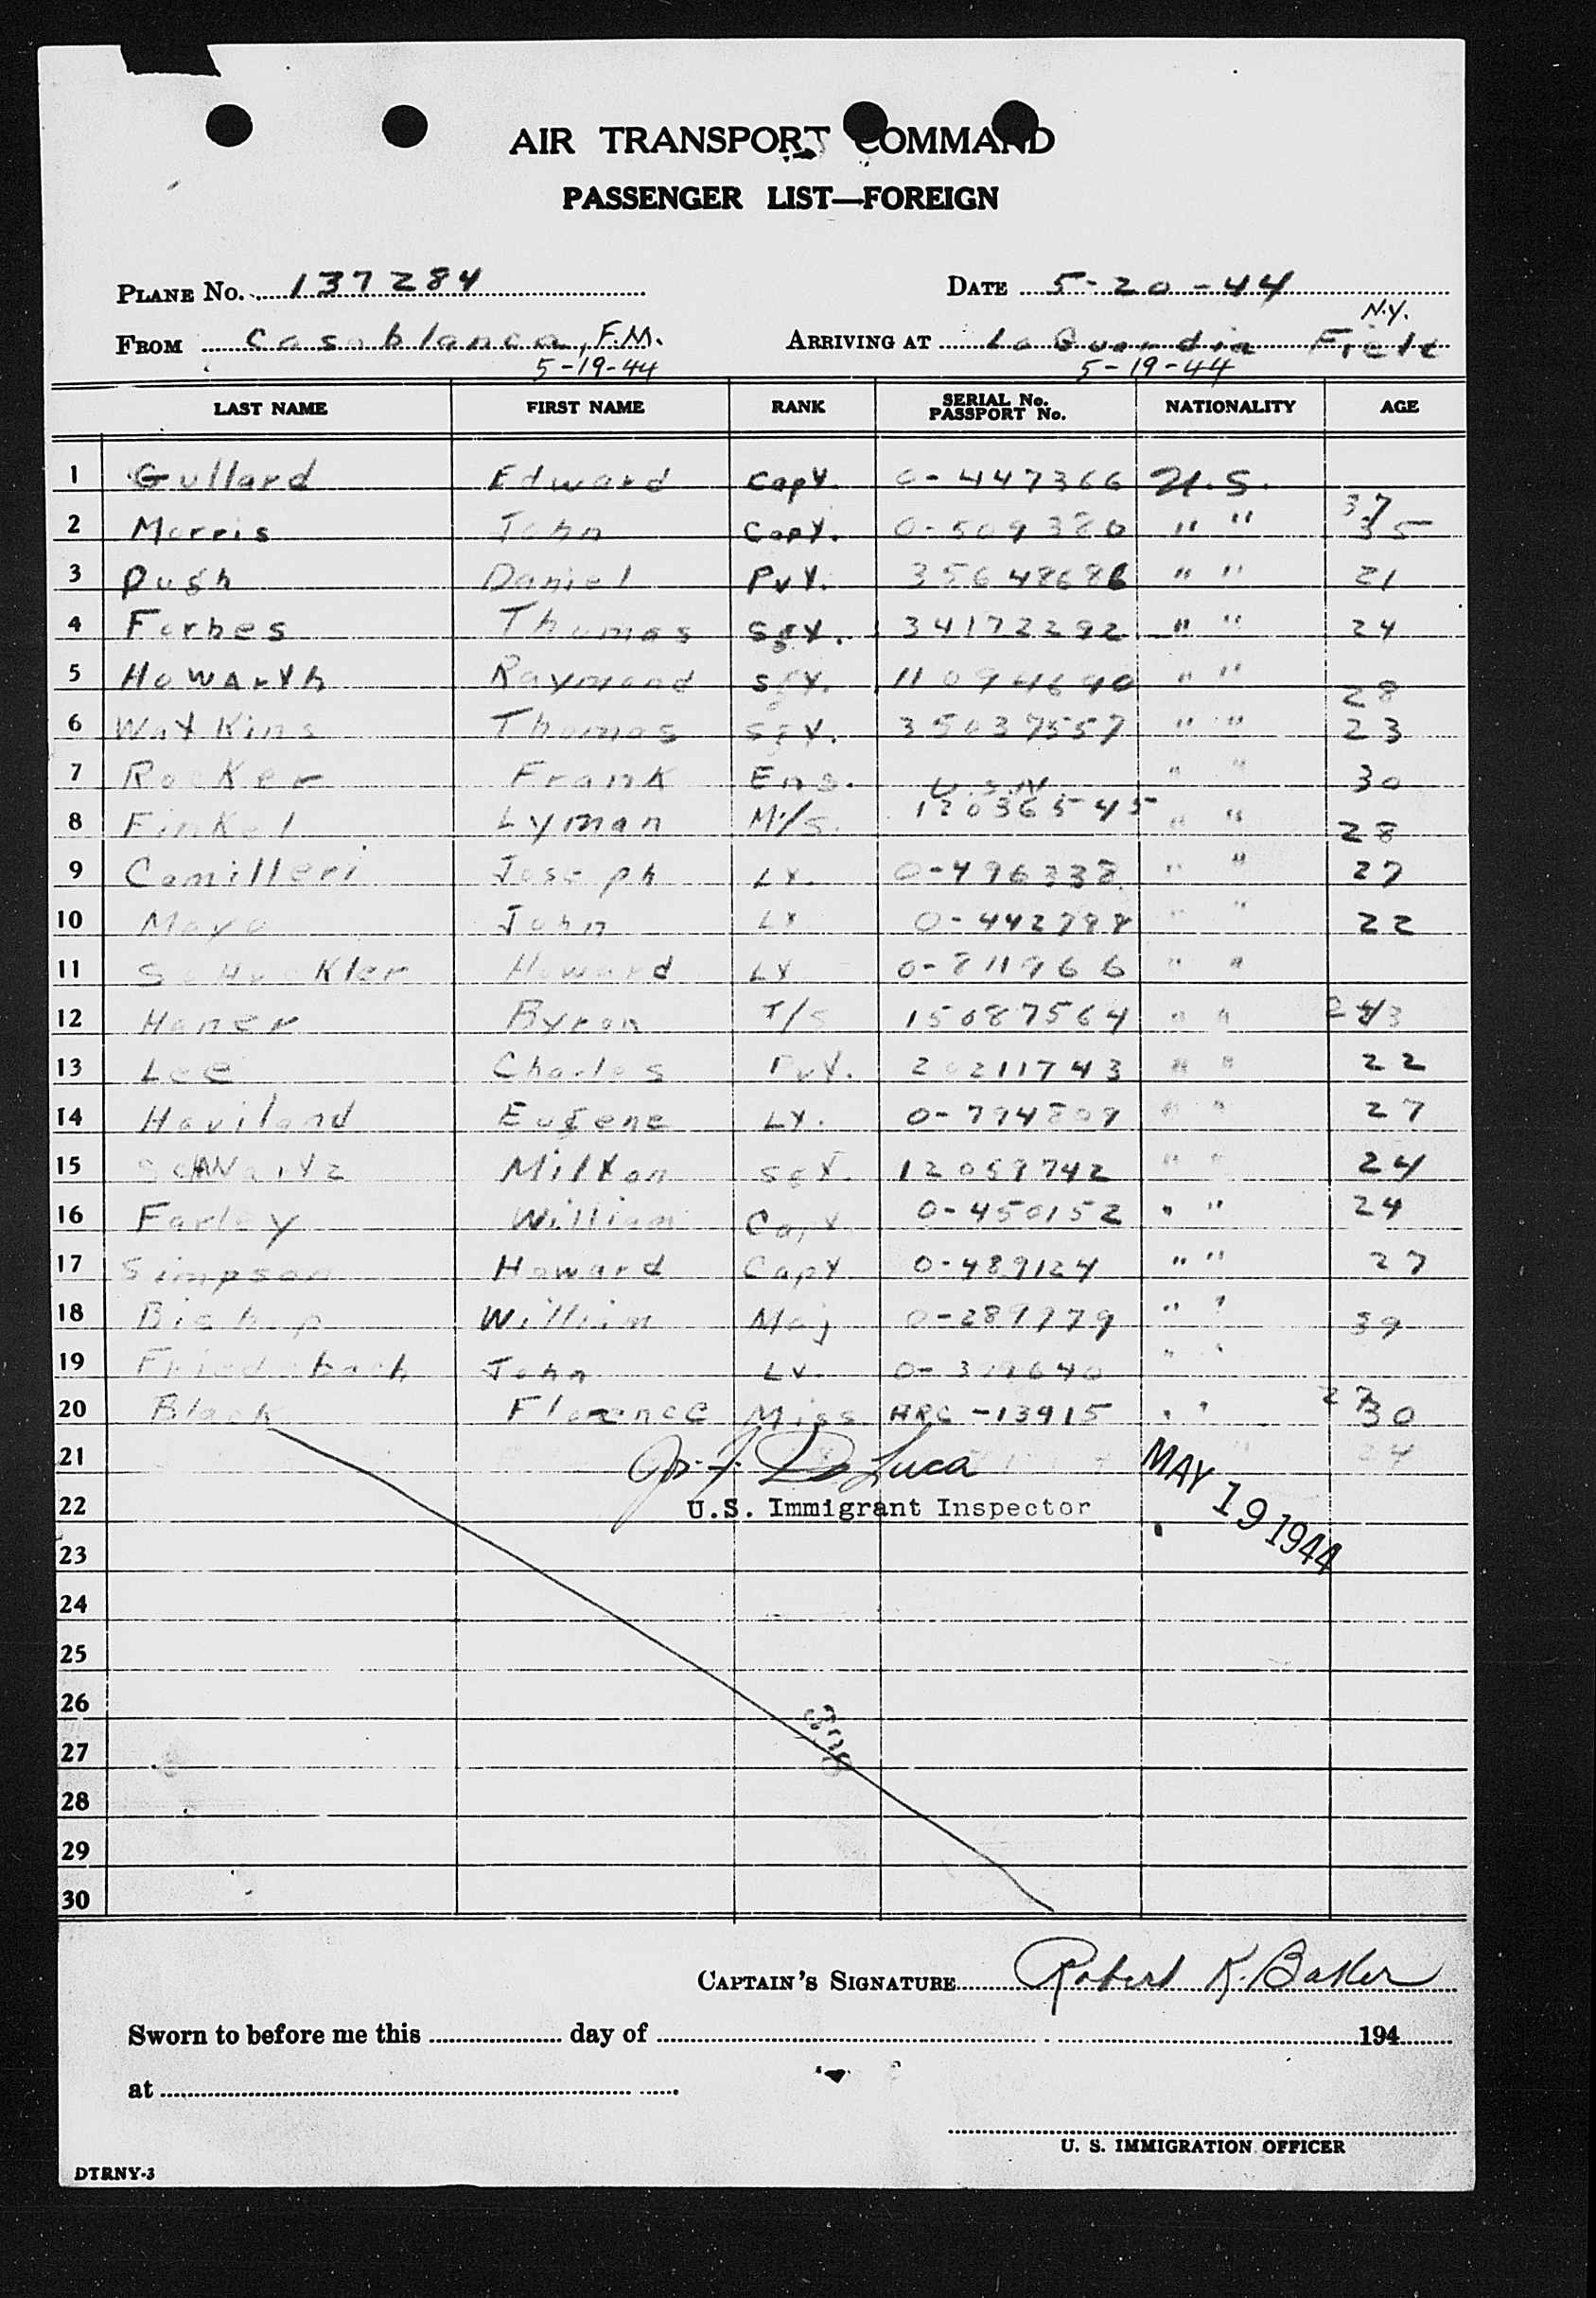 AIR TRANSPORT COMMAND
PASSENGER LIST—FOREIGN
PLANE No. 137284 DATE 5-20-44
N.Y.
FROM Casablanca, F.M. ARRIVING AT La Guardia Field
5-19-44 5-19-44
LAST NAME FIRST NAME RANK SERIAL No. PASSPORT No. NATIONALITY AGE
1 Gullard Edward Capt. 0-447366 U.S. 37
2 Morris John Capt. 0-509380 " " 35
3 Pugh Daniel Pvt. 35648686 " " 21
4 Forbes Thomas Sgt. 34172292 " " 24
5 Howarth Raymond Sgt. 11094690 " " 28
6 Watkins Thomas Sgt. 35037557 " " 23
7 Rocker Frank Ens. U.S.N. " " 30
8 Finkel Lyman M/S. 12036545 " " 28
9 Camilleri Joseph Lt. 0-496338 " " 27
10 John Lt " " 22
11 Howard Lt 0-811966 " "
12 Haner Byron T/S 15087564 " "
13 Lee Charles Pvt. 20211743 " " 22
14 Haviland Eugene Lt. 0-794809 " " 27
15 Schwartz Milton Sgt. 12059742 " " 24
16 Farley William Capt 0-450152 " " 24
17 Simpson Howard Capt 0-489124 " " 27
18 Bishop William Maj " " 39
19 John Lt. " "
20 Black Florence Miss ARC-13915 " " 30
21 Jos. F. De Luca 24
22 U.S. Immigrant Inspector
MAY 19 1944
23
24
25
26
27
28
29
30
CAPTAIN'S SIGNATURE Robert K. Baker
Sworn to before me this day of 194
at
U. S. IMMIGRATION OFFICER
DTRNY-3